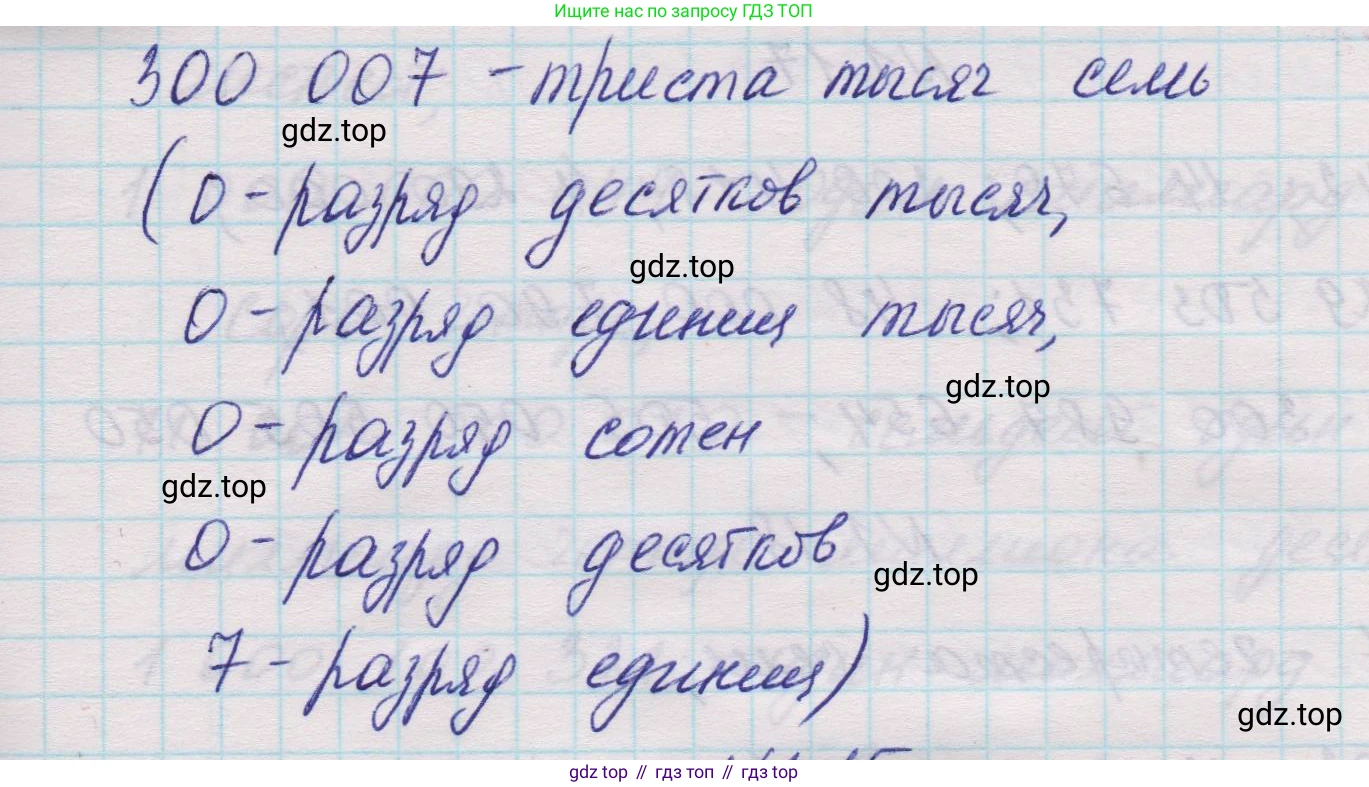 Ищите нас по запросу ГДЗ ТОП
300 007 – триста тысяч семь
gdz.top
(0 – разряд десятков тысяч,
gdz.top
0 – разряд единиц тысяч,
gdz.top
0 – разряд сотен
gdz.top
0 – разряд десятков
gdz.top
7 – разряд единиц)
gdz.top
gdz top // гдз топ // gdz top